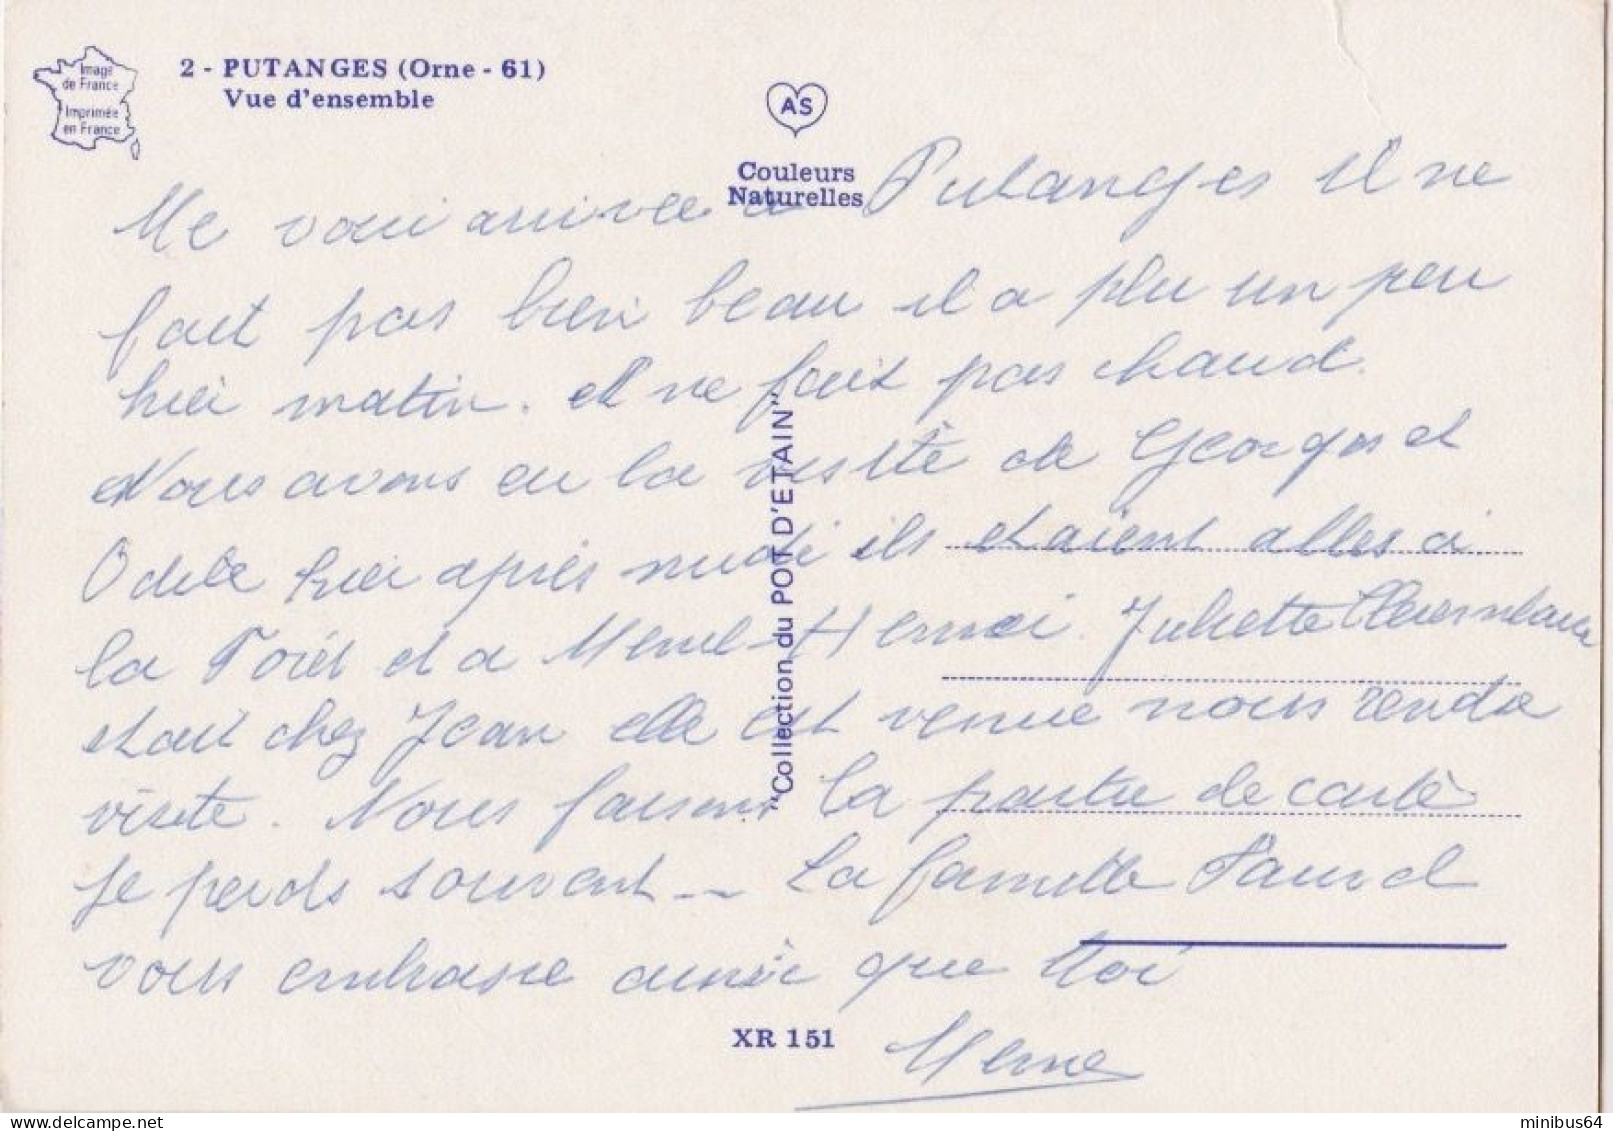 Image
de France
Imprimée
en France
2 - PUTANGES (Orne - 61)
Vue d'ensemble
AS
Couleurs
Naturelles
"Collection du POT D'ETAIN"
Me voici arrivée a Putanges il ne
fait pas bien beau il a plu un peu
hier matin. il ne fait pas chaud.
Nous avons eu la visite de Georges et
Odile hier après midi ils etaient alles a
la Foret et a Menil-Hermei. Juliette
etait chez Jean elle est venue nous rendre
visite. Nous faisons la partie de carte
je perds souvent -- La famille
vous embrasse ainsi que toi
Meme
XR 151
minibus64